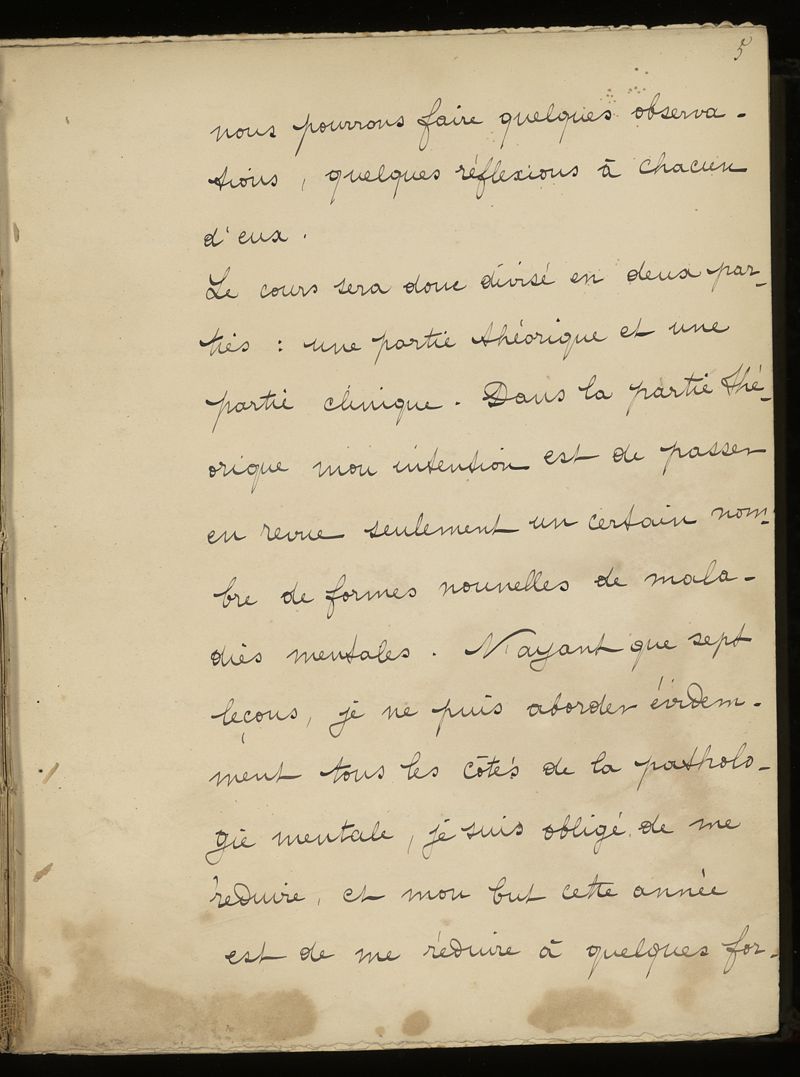 5
nous pourrons faire quelques observa-
tions, quelques réflexions à chacun
d'eux.
Le cours sera donc divisé en deux par-
ties : une partie théorique et une
partie clinique. Dans la partie thé-
orique mon intention est de passer
en revue seulement un certain nom-
bre de formes nouvelles de mala-
dies mentales. N'ayant que sept
leçons, je ne puis aborder évidem-
ment tous les côtés de la patholo-
gie mentale, je suis obligé de me
réduire, et mon but cette année
est de me réduire à quelques for-